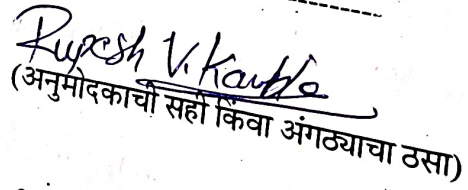 Rupesh V. Kamble
(अनुमोदकाची सही किंवा अंगठ्याचा ठसा)